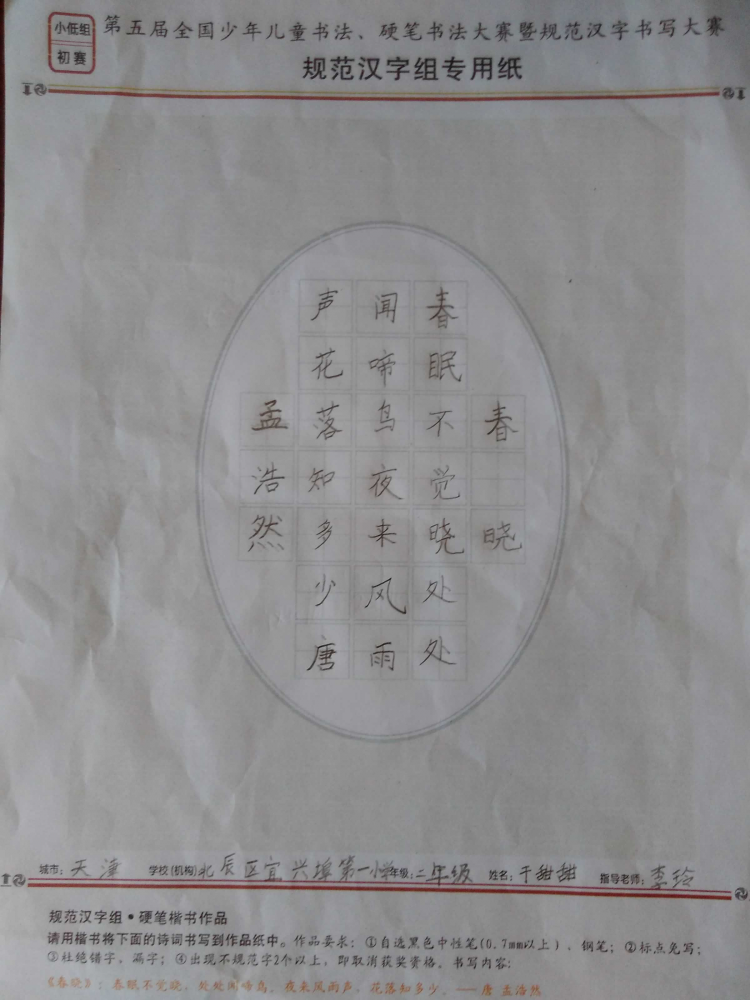 小低组
初赛
第五届全国少年儿童书法、硬笔书法大赛暨规范汉字书写大赛
规范汉字组专用纸
春晓
春眠不觉晓处处
闻啼鸟夜来风雨
声花落知多少唐
孟浩然
城市:天津 学校(机构)北辰区宜兴埠第一小学 年级:二年级 姓名:于甜甜 指导老师:李玲
规范汉字组·硬笔楷书作品
请用楷书将下面的诗词书写到作品纸中。作品要求:①自选黑色中性笔(0.7mm以上)、钢笔;②标点免写;
③杜绝错字、漏字;④出现不规范字2个以上,即取消获奖资格。书写内容:
《春晓》:春眠不觉晓,处处闻啼鸟。夜来风雨声,花落知多少。——唐 孟浩然